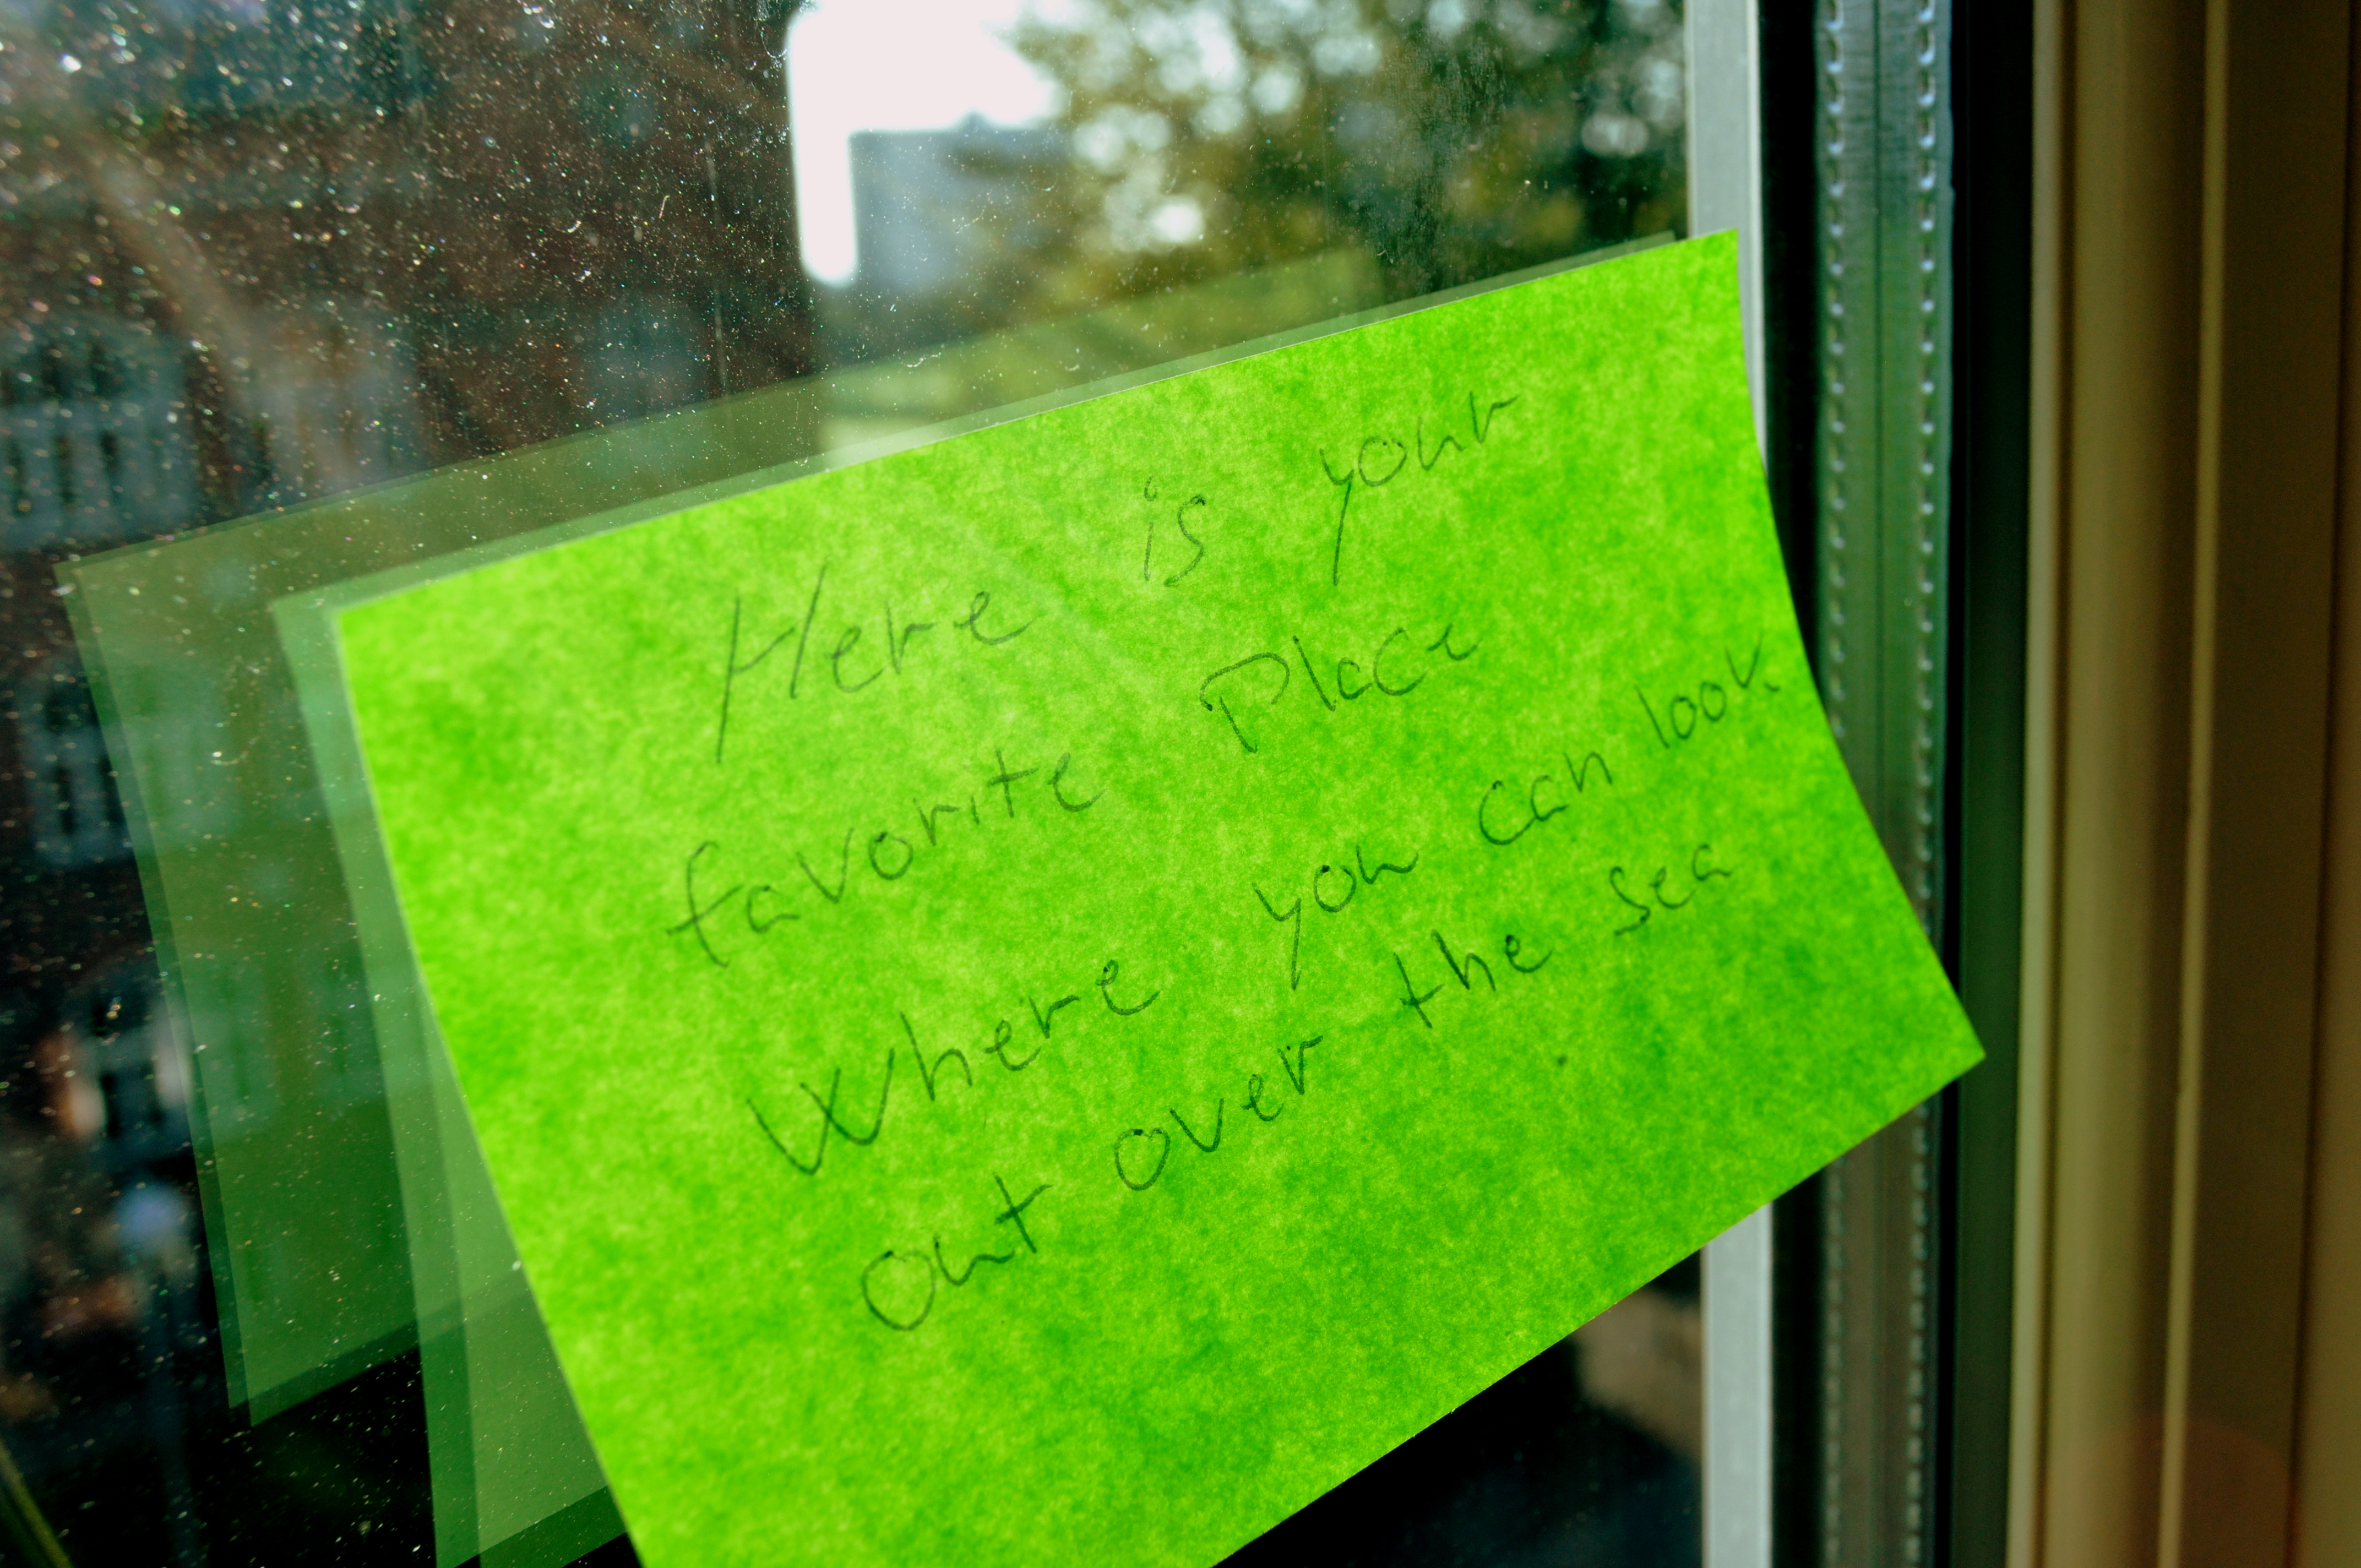 Here is your
favorite Place
Where you can look
out over the sea